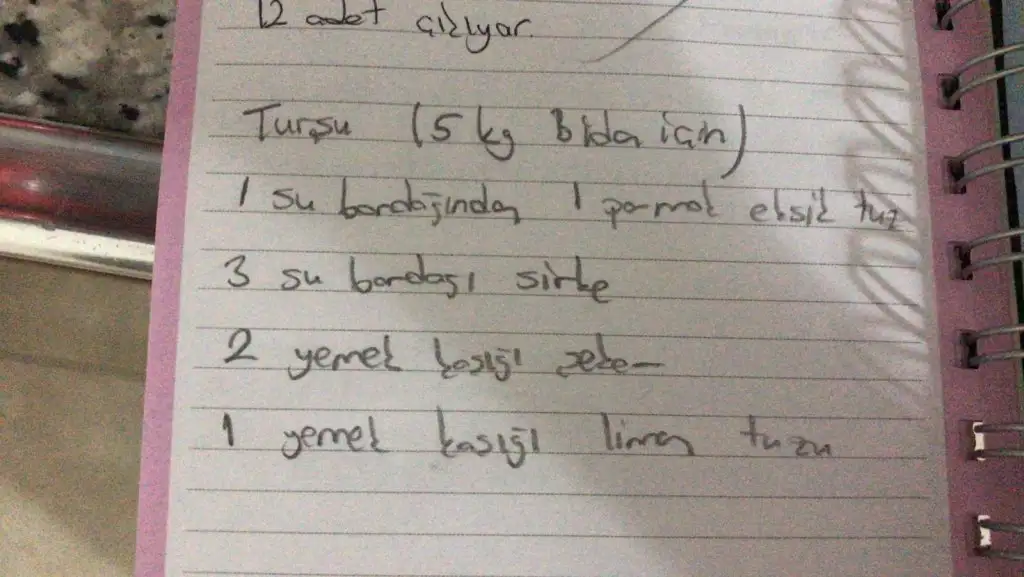 12 adet çıkıyor.
Turşu (5 kg bidon için)
1 su bardağından 1 parmak eksik tuz
3 su bardağı sirke
2 yemek kaşığı şeker
1 yemek kaşığı limon tuzu